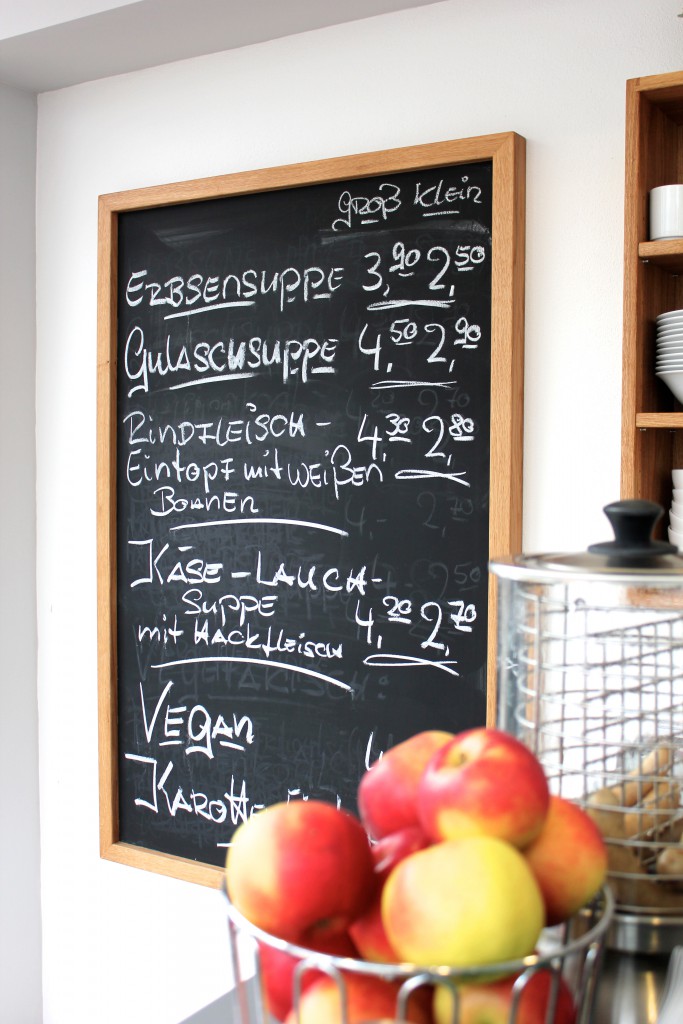 groß klein
Erbsensuppe 3,90 2,50
Gulaschsuppe 4,50 2,90
Rindfleisch- 4,30 2,80
Eintopf mit weißen
Bohnen
Käse-Lauch-
Suppe 4,20 2,70
mit Hackfleisch
Vegan